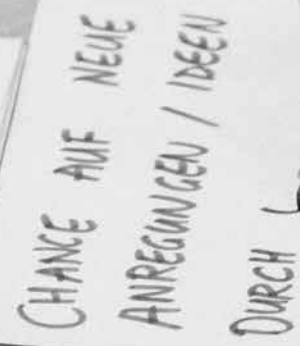 CHANCE AUF NEUE
ANREGUNGEN / IDEEN
DURCH